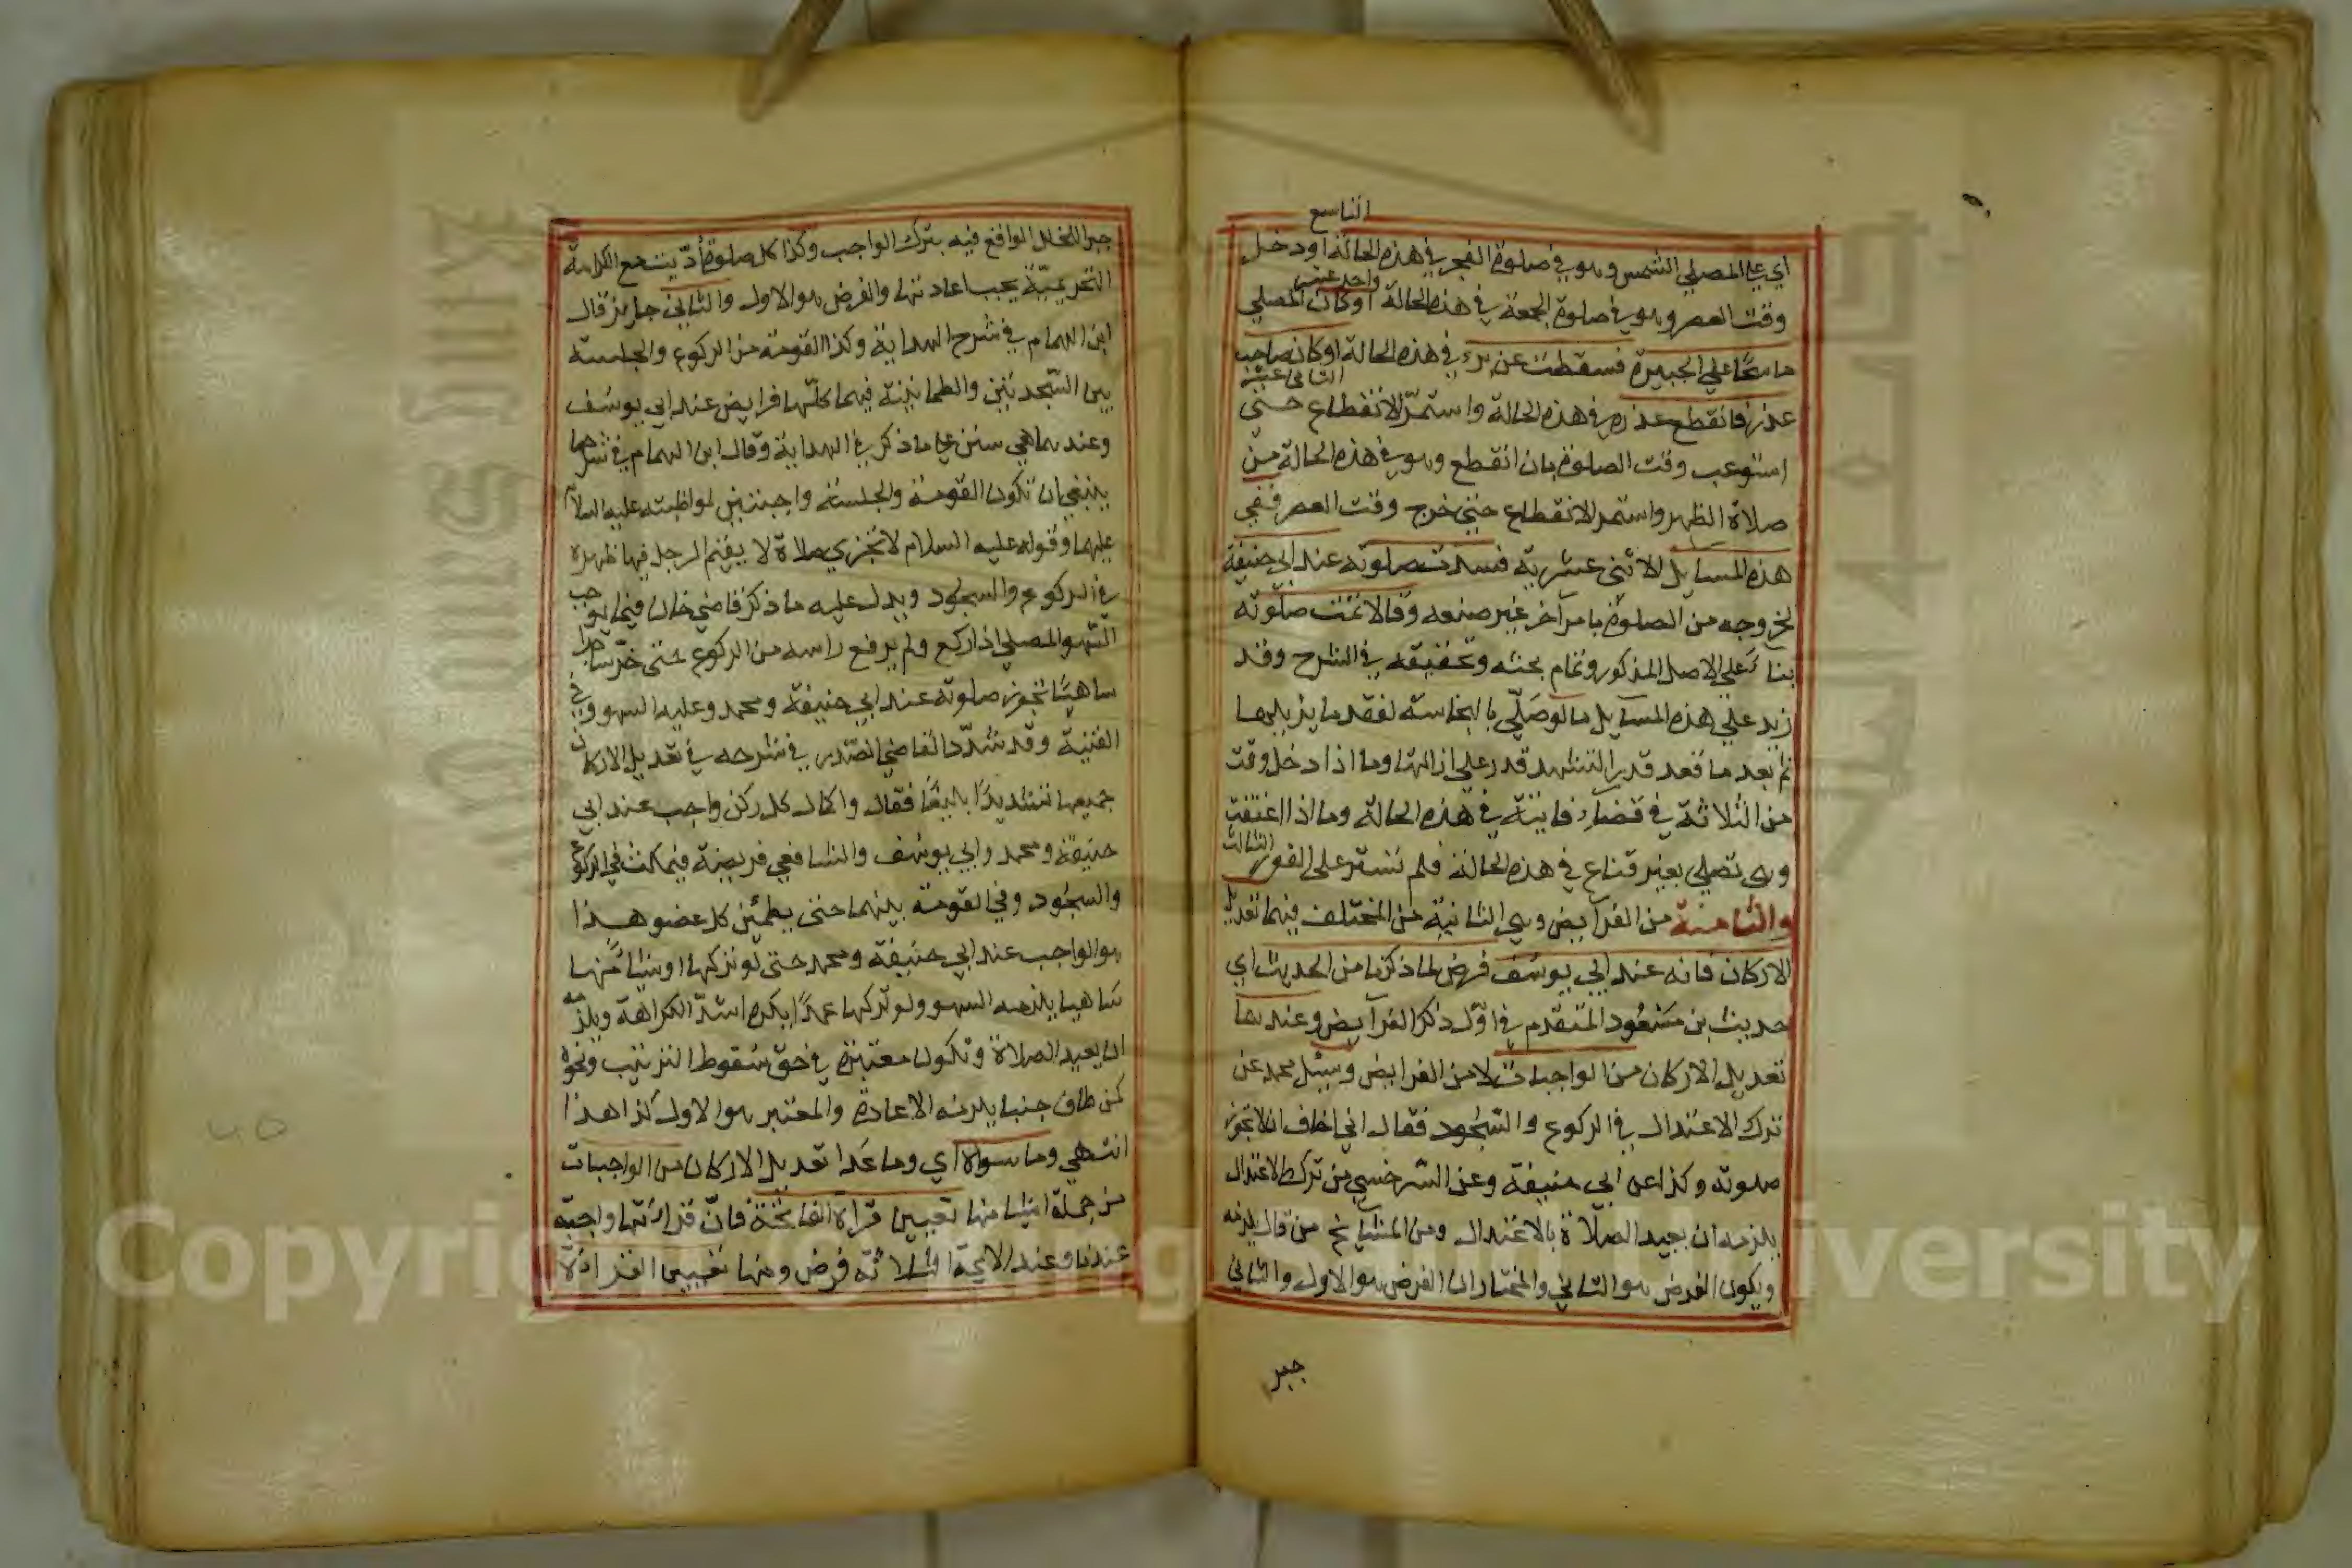 التاسع
اي على المصلي الشمس وهو في صلوة الفجر في هذه الحالة او دخل
واحد عشر
وقت العصر وهو في صلوة الجمعة في هذه الحالة او كان المصلي
ماسحًا علي الجبيرة فسقطت عن برء في هذه الحالة او كان صاحب
الثاني عشر
عذر فانقطع عذره في هذه الحالة واستمرّ الانقطاع حتي
استوعب وقت الصلوة بان انقطع وهو في هذه الحالة من
صلاة الظهر واستمر الانقطاع حتي خرج وقت العصر ففي
هذه المسايل الاثني عشرية فسدت صلوته عند ابي حنيفة
لخروجه من الصلوة بامر آخر غير صنعه وقالا تمت صلوته
بناءً علي الاصل المذكور وتمام بحثه وتحقيقه في الشرح وقد
زيد علي هذه المسايل ما لو صلّي بالنجاسة لفقد ما يزيلها
ثم بعد ما قعد قدر التشهد قدر علي ازالتها وما اذا دخل وقت
من الثلاثة في قضاء فايتة في هذه الحالة وما اذا اعتقت
وهي تصلي بغير قناع في هذه الحالة فلم تستتر على الفور
الثالث
والثامنة من الفرايض وهي الثانية من المختلف فيها تعديل
الاركان فانه عند ابي يوسف فرض لما ذكرنا من الحديث اي
حديث بن مسعود المتقدم في اوّل ذكر الفرايض وعندهما
تعديل الاركان من الواجبات لا من الفرايض وسئل محمد عن
ترك الاعتدال في الركوع والسجود فقال اني اخاف ان لا تجوز
صلوته وكذا عن ابي حنيفة وعن السرخسي من ترك الاعتدال
يلزمه ان يعيد الصلاة بالاعتدال ومن المشايخ من قال يلزمه
ويكون الفرض هو الثاني والمختار ان الفرض هو الاول والثاني
جبر
جبر للخلل الواقع فيه بترك الواجب وكذا كل صلوة أدّيت مع الكراهة
التحريميّة يجب اعادتها والفرض هو الاول والثاني جابر قال
ابن الهمام في شرح الهداية وكذا القومة من الركوع والجلسة
بين السجدتين والطمانينة فيهما كلّها فرايض عند ابي يوسف
وعندهما هي سنن علي ما ذكر في الهداية وقال ابن الهمام في شرحها
ينبغي ان تكون القومة والجلسة واجبتين لمواظبته عليه السلام
عليهما وقوله عليه السلام لا تجزي صلاة لا يقيم الرجل فيها ظهره
في الركوع والسجود ويدل عليه ما ذكر قاضي خان فيما يوجب
السهو المصلي اذا ركع ولم يرفع راسه من الركوع حتي خرّ ساجدا
ساهيًا تجوز صلوته عند ابي حنيفة ومحمد وعليه السهو وفي
القنية وقد شدّد القاضي الصدر في شرحه في تعديل الاركان
جميعها تشديدًا بليغًا فقال واكمال كل ركن واجب عند ابي
حنيفة ومحمد وابي يوسف والشافعي فريضة فيمكث في الركوع
والسجود وفي القومة بينهما حتي يطمئن كل عضو هذا
هو الواجب عند ابي حنيفة ومحمد حتى لو تركها او شيئا منها
ساهيا يلزمه السهو ولو تركها عمدًا يكره اشدّ الكراهة ويلزمه
ان يعيد الصلاة وتكون معتبرة في حق سقوط الترتيب ونحوه
كمن طاف جنبا يلزمه الاعادة والمعتبر هو الاول كذا هذا
انتهي وما سواه اي وما عدا تعديل الاركان من الواجبات
من جملة اشيا منها تعيين قراة الفاتحة فانّ قراءتها واجبة
عندنا وعند الايمة الثلاثة فرض ومنها تعيين القراءة